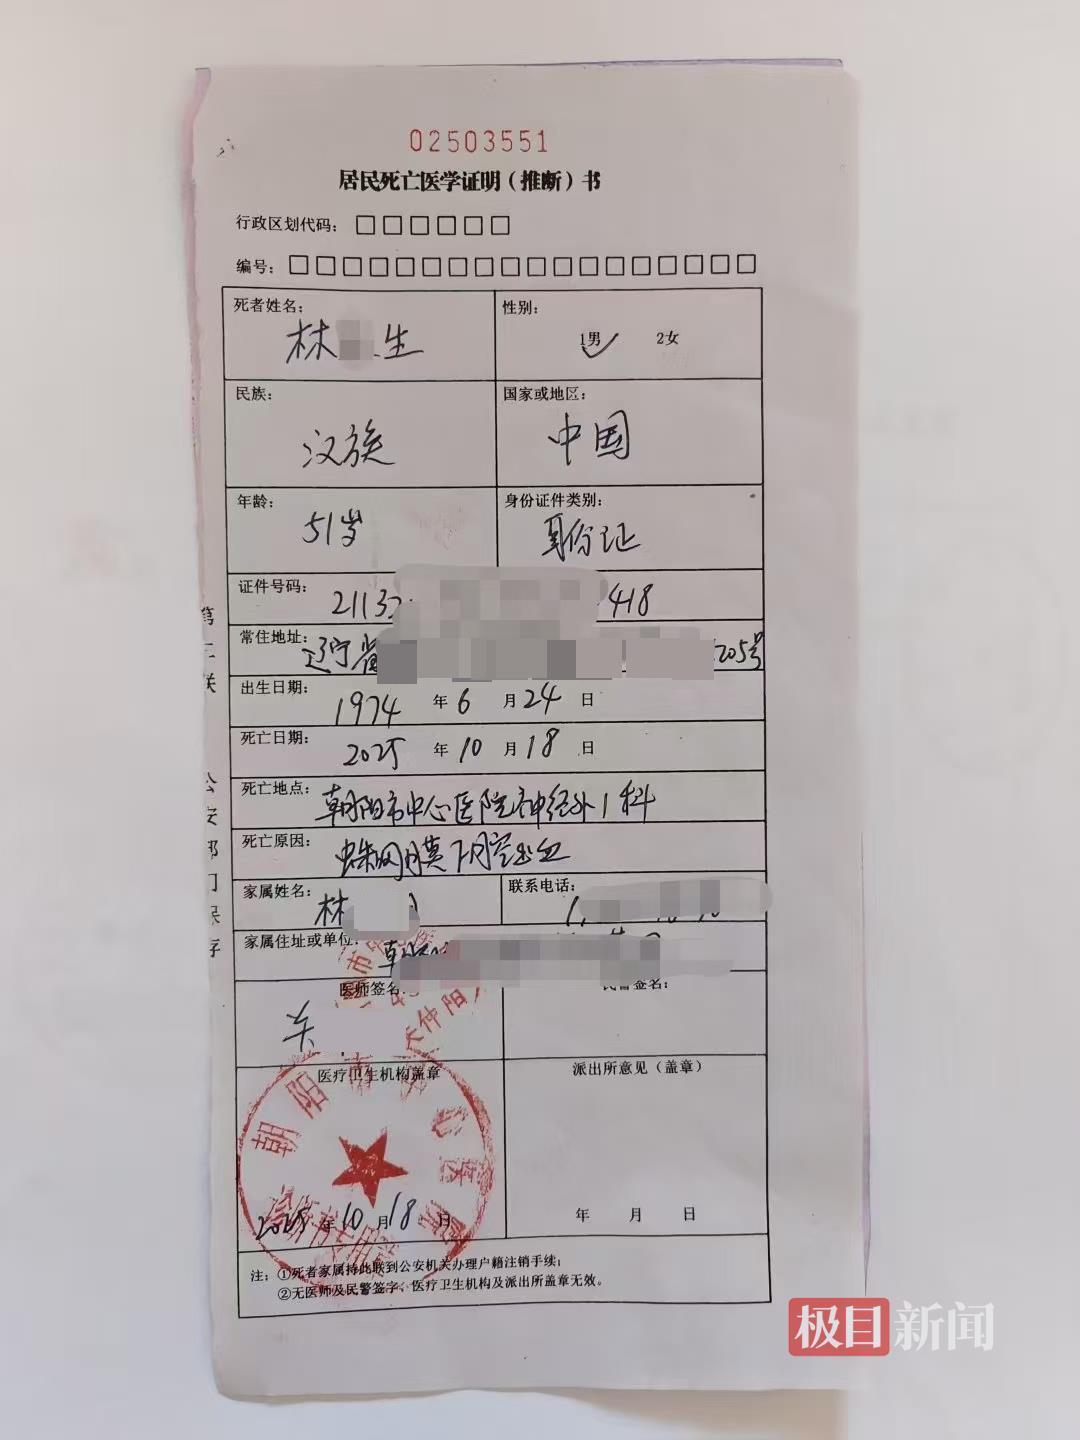 02503551
居民死亡医学证明（推断）书
行政区划代码：
编号：
死者姓名：
林 生
性别：
1男 2女
民族：
汉族
国家或地区：
中国
年龄：
51岁
身份证件类别：
身份证
证件号码：
2113 418
常住地址：
辽宁省 205号
出生日期：
1974 年 6 月 24 日
死亡日期：
2025 年 10 月 18 日
死亡地点：
朝阳市中心医院神经外1科
死亡原因：
蛛网膜下腔出血
家属姓名：
林
联系电话：
家属住址或单位：
朝阳
医师签名：
关
民警签名：
医疗卫生机构盖章
朝阳市中心医院
2025 年 10 月 18 日
派出所意见（盖章）
年 月 日
注：①死者家属持此联到公安机关办理户籍注销手续；
②无医师及民警签字、医疗卫生机构及派出所盖章无效。
第三联 公安部门保存
极目新闻